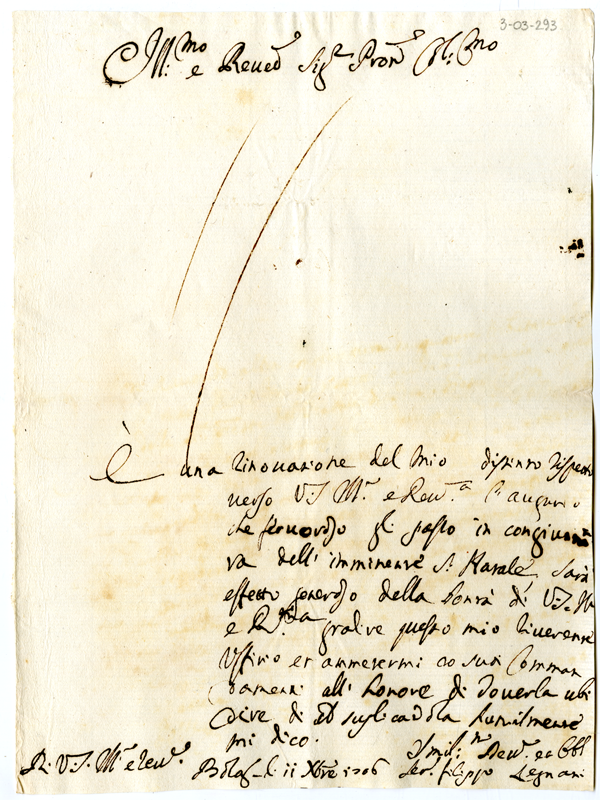 3-03-293
Ill:mo e Reved.o Sig.r Pron. Col:mo
È una rinouatione del mio distinto rispetto
verso V.S. Ill.ma e Reu.ma l'augurio
che feruoroso gli passo in congiuntu
ra dell' imminente S. Natale, sarà
effetto generoso della bontà di V.S. Ill
e R.ma gradire questo mio riuerente
Vffitio et ammetermi a suoi Comman
damenti all' honore di douerla ubi
dire di et suplicandola humilmente
mi dico.
Di V.S. Ill.ma e Reu.ma Bolog. li 11 Xbre 1706
Humili.mo Deu. et Obbl
Ser. filippo Legnani